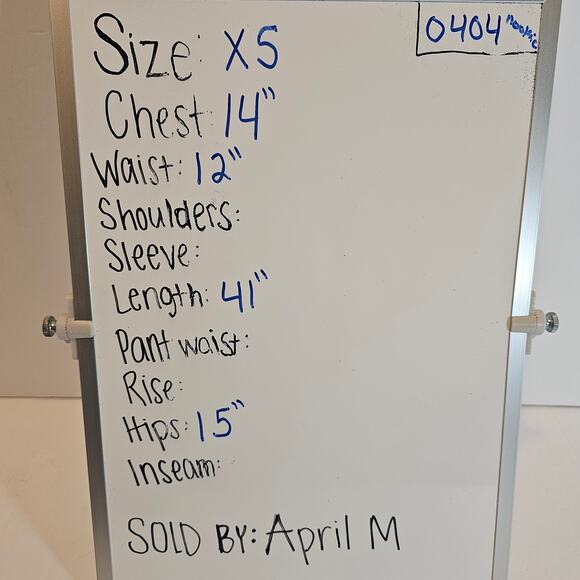 0404 nookie
Size: XS
Chest 14"
Waist: 12"
Shoulders:
Sleeve:
Length: 41"
Pant waist:
Rise:
Hips: 15"
Inseam:
SOLD BY: April M